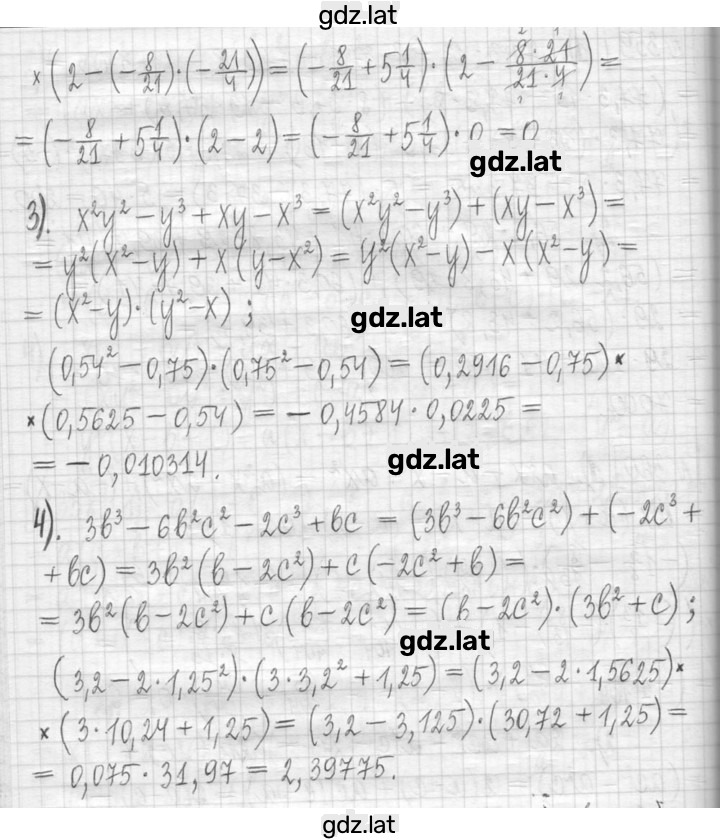 gdz.lat
× (2 − (−8/21)·(−21/4)) = (−8/21 + 5 1/4)·(2 − 8·21/21·4) =
= (−8/21 + 5 1/4)·(2 − 2) = (−8/21 + 5 1/4)·0 = 0.
gdz.lat
3). x²y² − y³ + xy − x³ = (x²y² − y³) + (xy − x³) =
= y²(x² − y) + x(y − x²) = y²(x² − y) − x(x² − y) =
= (x² − y)·(y² − x);
gdz.lat
(0,54² − 0,75)·(0,75² − 0,54) = (0,2916 − 0,75) ×
× (0,5625 − 0,54) = − 0,4584 · 0,0225 =
= − 0,010314.
gdz.lat
4). 3в³ − 6в²с² − 2с³ + вс = (3в³ − 6в²с²) + (−2с³ +
+ вс) = 3в²(в − 2с²) + с(−2с² + в) =
= 3в²(в − 2с²) + с(в − 2с²) = (в − 2с²)·(3в² + с);
gdz.lat
(3,2 − 2·1,25²)·(3·3,2² + 1,25) = (3,2 − 2·1,5625) ×
× (3·10,24 + 1,25) = (3,2 − 3,125)·(30,72 + 1,25) =
= 0,075 · 31,97 = 2,39775.
gdz.lat